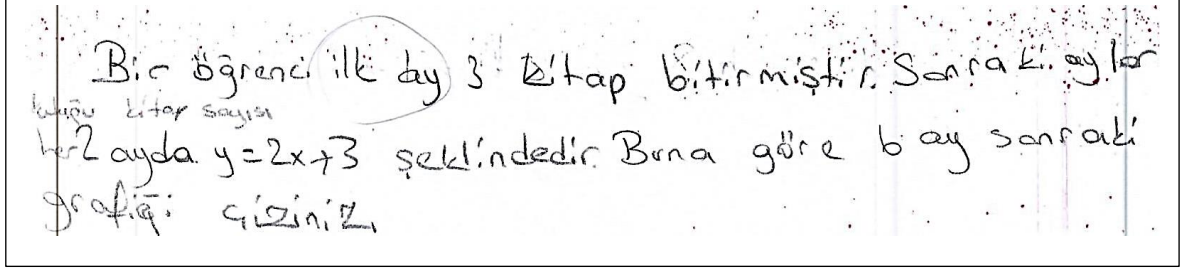 Bir öğrenci ilk ay 3 kitap bitirmiştir. Sonraki aylar
okuduğu kitap sayısı
her 2 ayda y=2x+3 şeklindedir. Buna göre 6 ay sonraki
grafiği çiziniz.